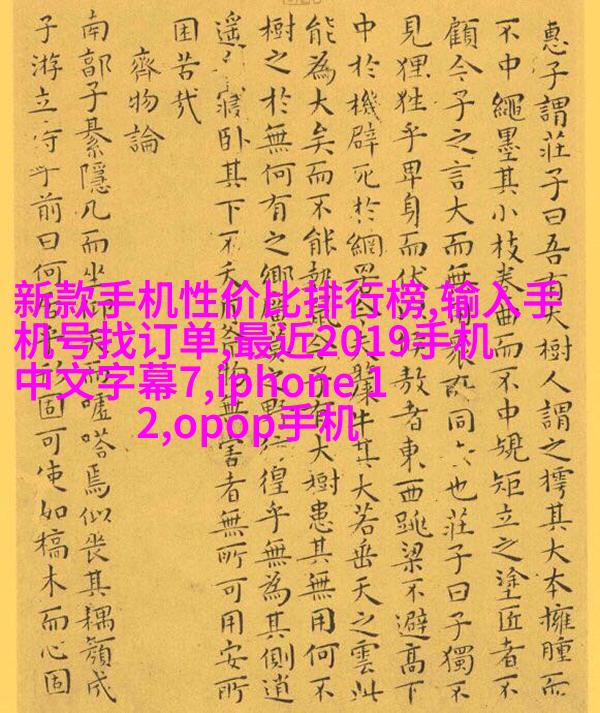 惠子謂莊子曰吾有大樹人謂之樗其大本擁腫而
不中繩墨其小枝卷曲而不中規矩立之塗匠者不
顧今子之言大而無用眾所同去也莊子曰子獨不
見狸狌乎卑身而伏以候敖者東西跳梁不避高下
中於機辟死於網罟今夫斄牛其大若垂天之雲此
能為大矣而不能執鼠今子有大樹患其無用何不
樹之於無何有之鄉廣莫之野彷徨乎無為其側逍
遙寢臥其下不夭斤斧物無害者無所可用安所
困苦哉
齊物論
南郭子綦隱几而坐仰天而噓嗒焉似喪其耦顏成
子游立侍乎前曰何居乎形固可使如槁木而心固
新款手机性价比排行榜,输入手
机号找订单,最近2019手机
中文字幕7,iphone 1
2,opop手机